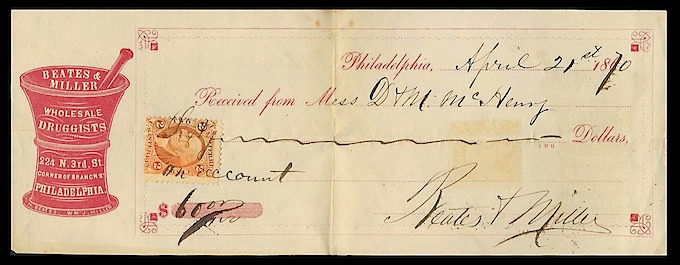 BEATES &
MILLER
WHOLESALE
DRUGGISTS
224 N. 3rd. St.
CORNER OF BRANCH ST
PHILADELPHIA.
BEATES. WM. J. MILLER
Philadelphia, April 21st 1870
Received from Mess D & M. McHenry
Dollars,
100
on account
$ 60 00/100
Beates & Miller